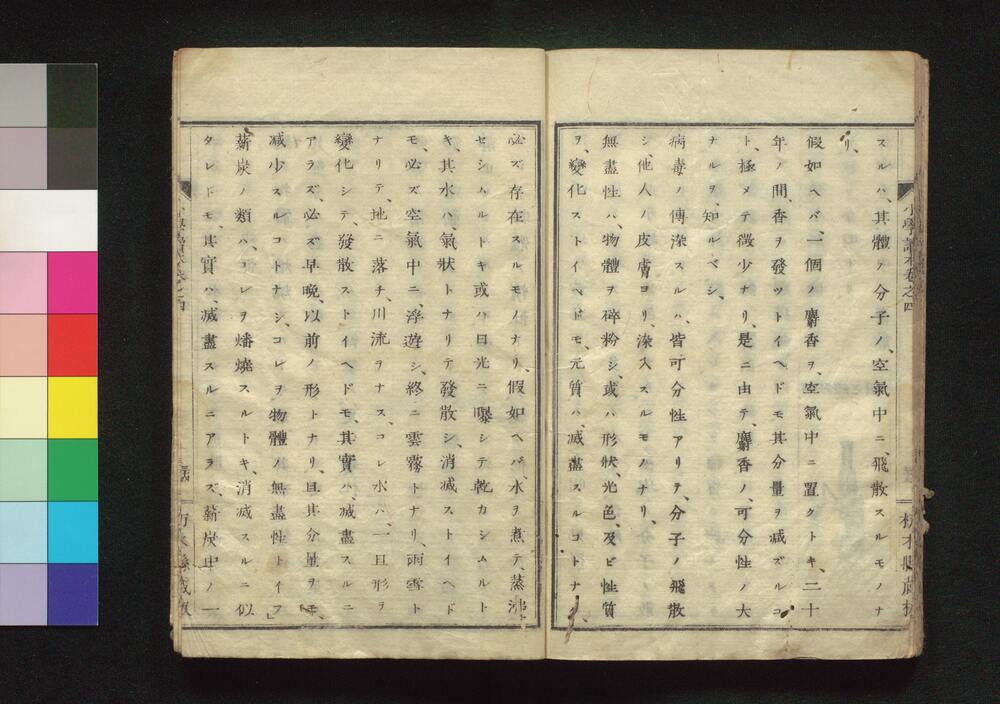 スルハ、其體ノ分子ノ、空氣中ニ、飛散スルモノナ
リ、
假如ヘバ、一個ノ麝香ヲ、空氣中ニ置クトキ、二十
年ノ間、香ヲ發ツトイヘドモ、其分量ヲ減ズルコ
ト、極メテ微少ナリ、是ニ由テ、麝香ノ、可分性ノ大
ナルヲ、知ルベシ、
病毒ノ傳染スルハ、皆可分性アリテ、分子ノ飛散
シ、他人ノ皮膚ヨリ、染入スルモノナリ、
無盡性ハ、物體ヲ碎粉シ、或ハ形狀、光色、及ビ性質
ヲ、變化ストイヘドモ、元質ハ、減盡スルコトナク、
小學讀本卷之四
栃木縣藏板
必ズ存在スルモノナリ、假如ヘバ、水ヲ煮テ、蒸沸
セシムルトキ、或ハ日光ニ曝シテ、乾カシムルト
キ、其水ハ、氣狀トナリテ發散シ、消滅ストイヘド
モ、必ズ空氣中ニ、浮遊シ、終ニ雲霧トナリ、雨雪ト
ナリテ、地ニ落チ、川流ヲナス、コレ水ハ、一旦形ヲ
變化シテ、發散ストイヘドモ、其實ハ、減盡スルニ
アラズ、必ズ早晩、以前ノ形トナリ、且其分量ヲモ、
減少スルコトナシ、コレヲ物體ノ無盡性トイフ」
薪炭ノ類ハ、コレヲ燔燒スルトキ、消滅スルニ似
タレドモ、其實ハ、減盡スルニアラズ、薪炭中ノ一